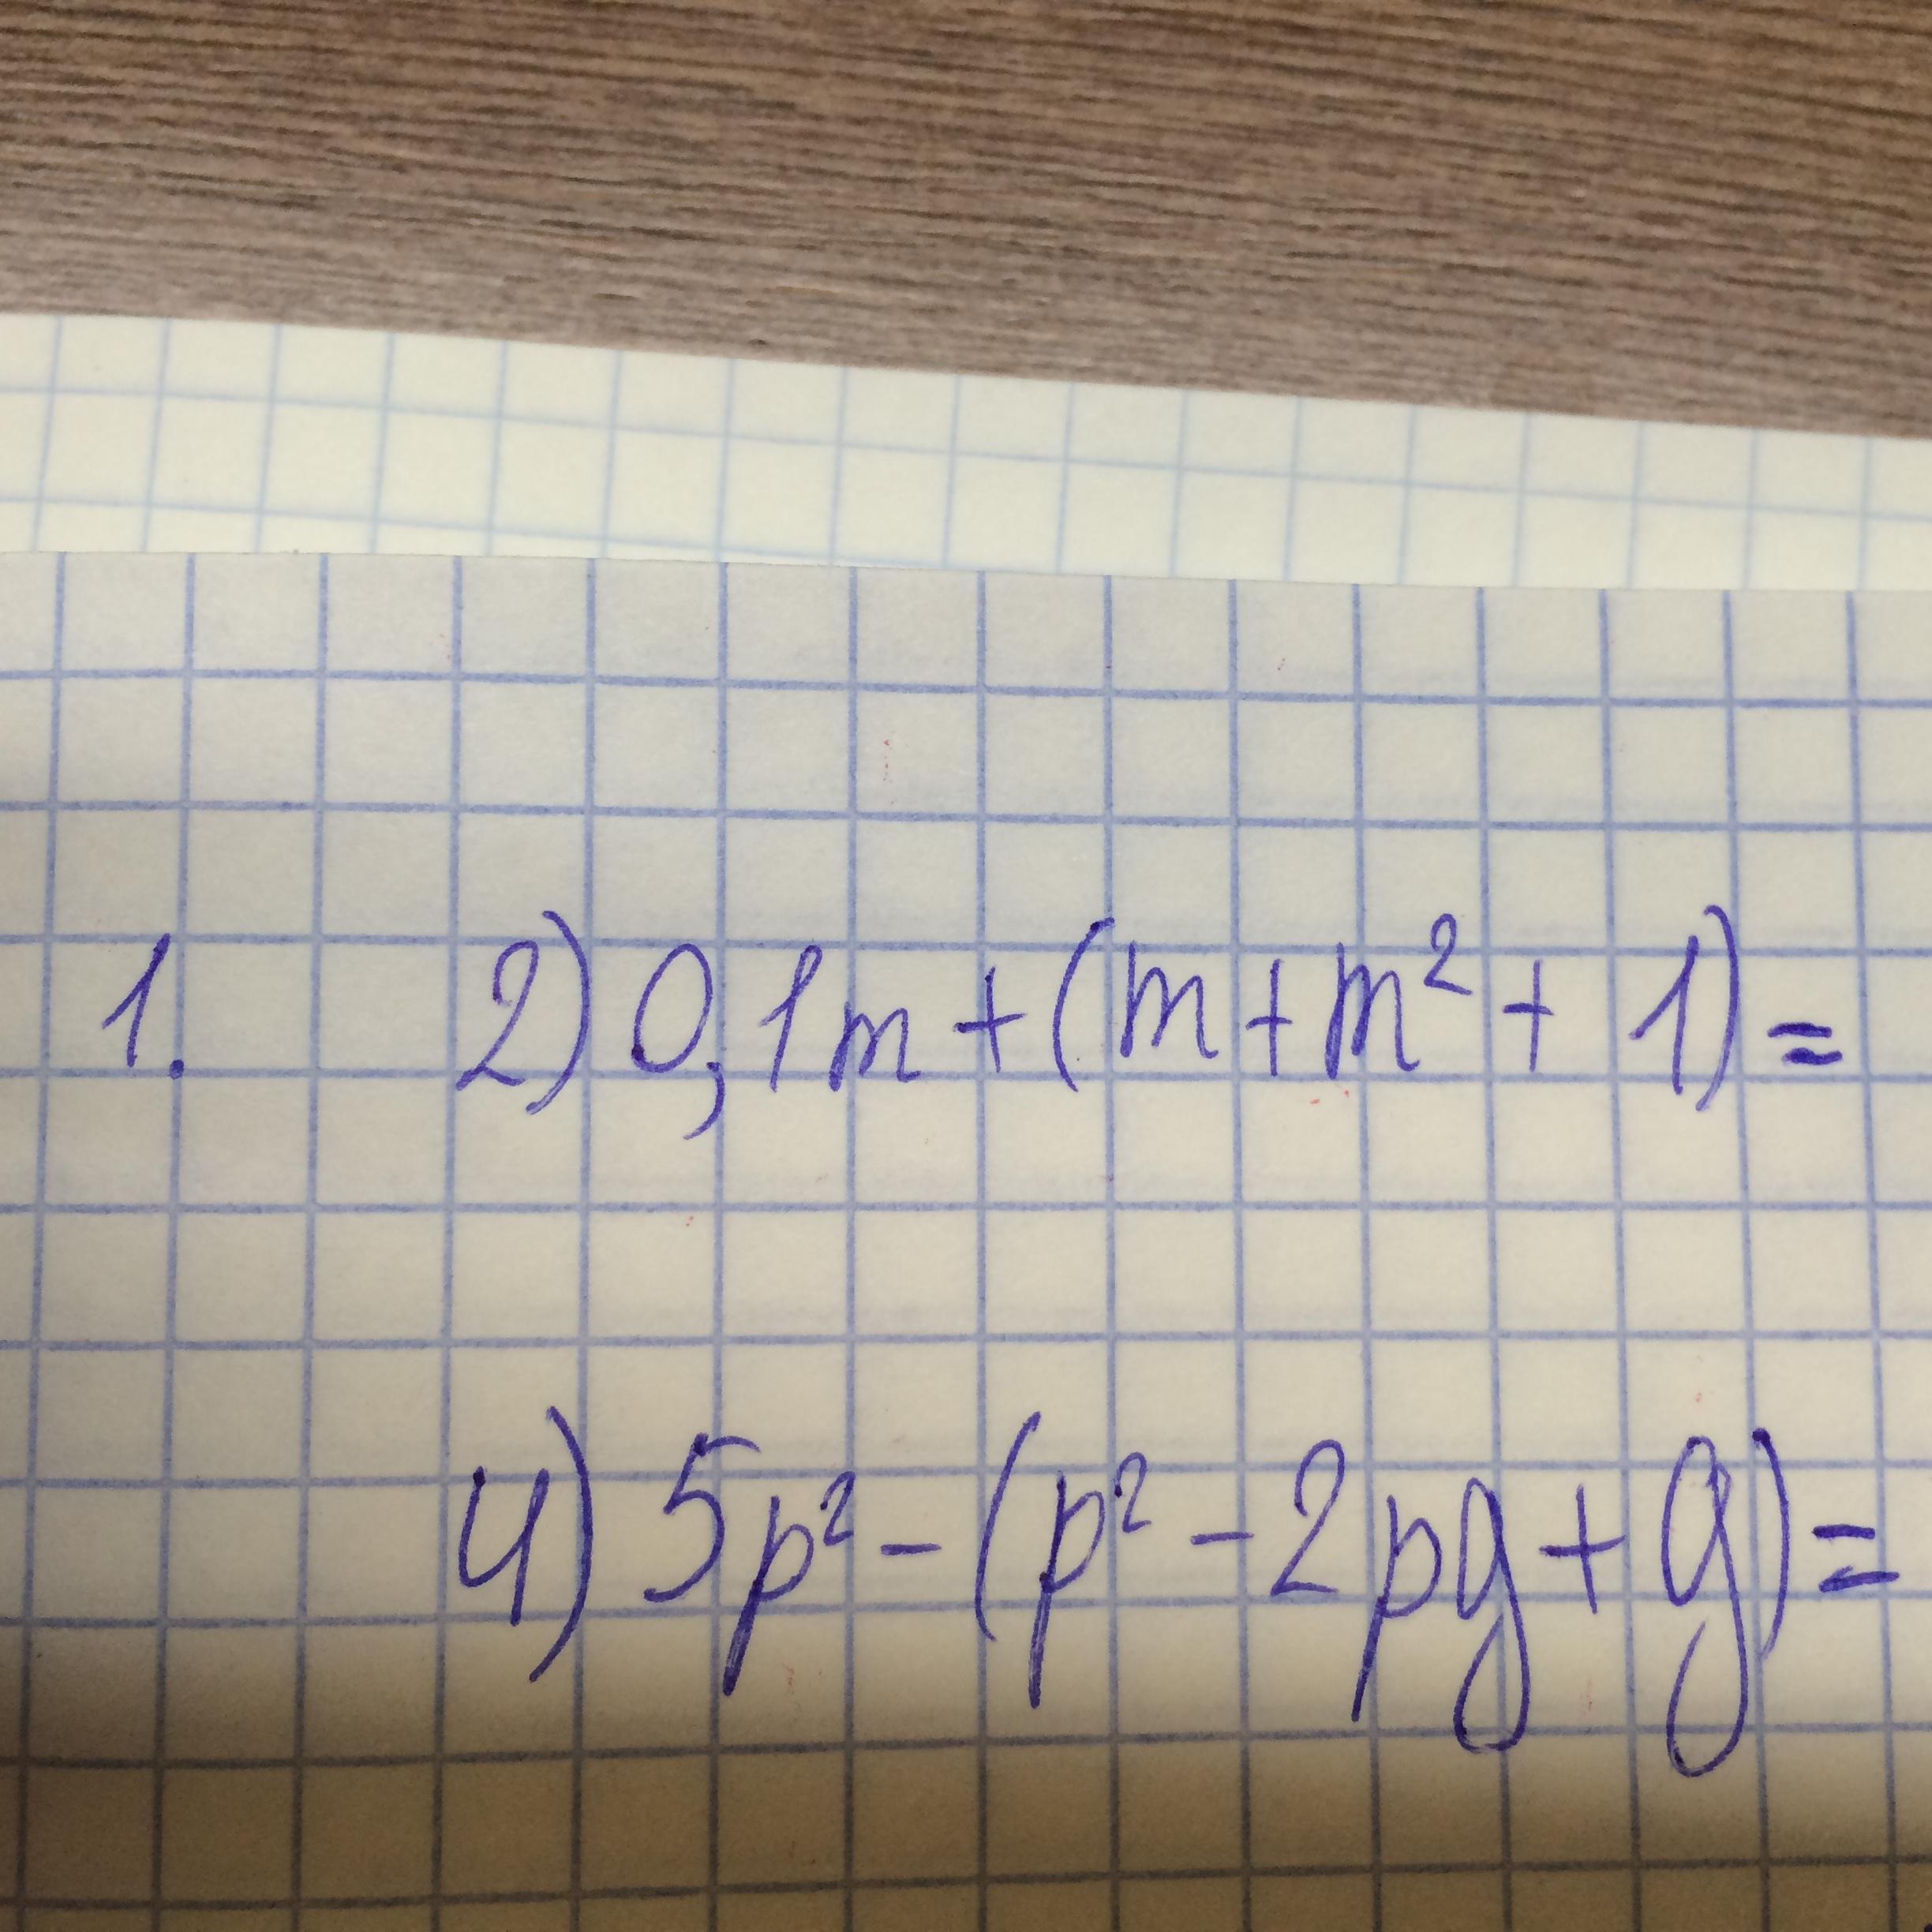 1. 2) 0,1m + (m + m² + 1) =
4) 5p² - (p² - 2pg + g) =